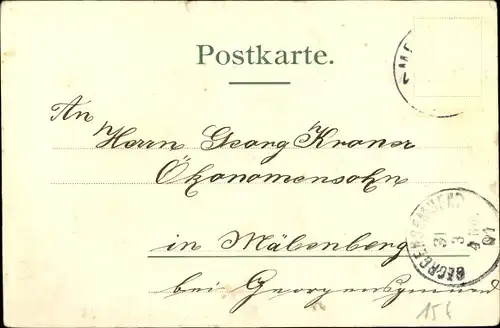 Postkarte.
An
Herrn Georg Kraner
Ökonomensohn
in Mäbenberg
bei Georgensgmünd
GEORGENSGMUEND
31
3
4 Nm.
01
15 €